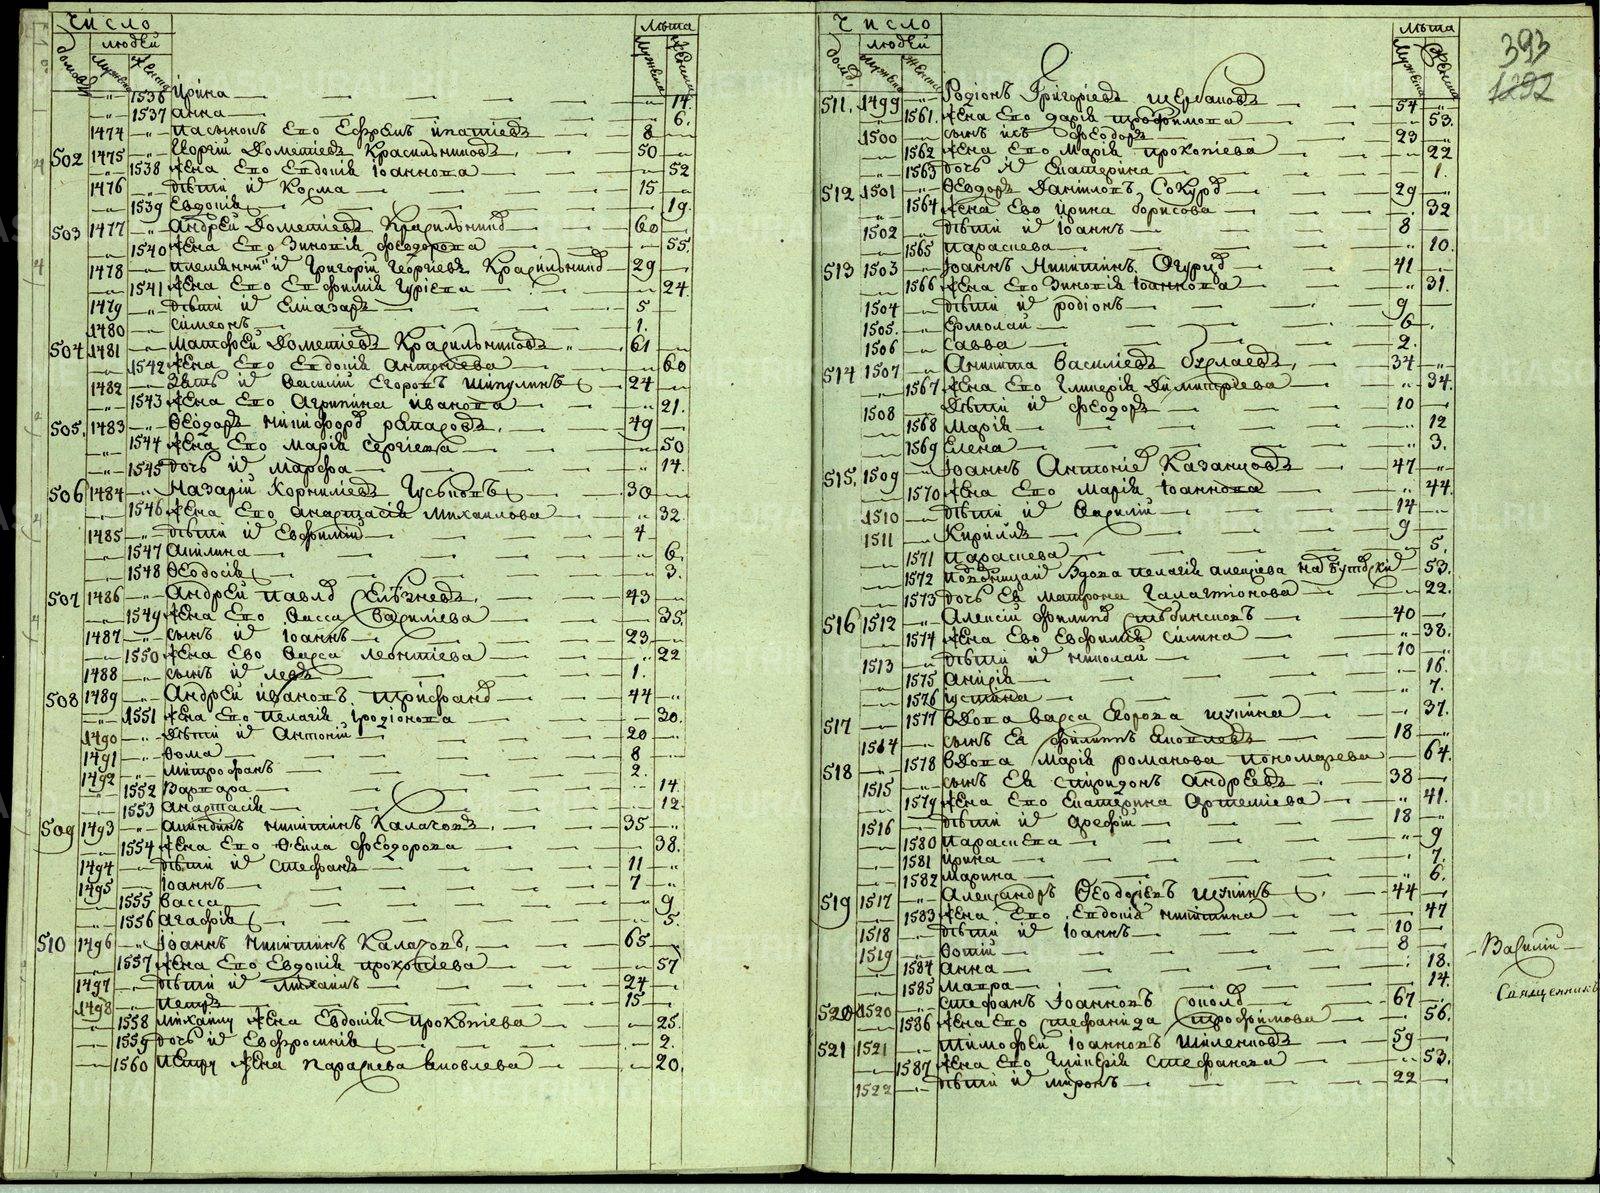 Число
людей
домовъ
мужеска
женска
Лѣта
мужеска
женска
1536 Ирина 14.
1537 Анна 6.
1474 пасынокъ Его Ефремъ Ипатіевъ 8
502 1475 Георгій Дометіевъ Красильниковъ 50
1538 жена Его Евдокія Іоаннова 52
1476 дѣти их Козма 15
1539 Евдокія 19.
503 1477 Андрей Дометіевъ Красильник 60
1540 жена Его Зиновія Феодорова 55.
1478 племянник их Григорій Георгіевъ Красильник 29
1541 жена Его Евфимія Гуріева 24.
1479 дѣти их Еліазаръ 5
1480 Симеонъ 1.
504 1481 Матфей Дометіевъ Красильниковъ 61
1542 жена Его Евдокія Антоніева 60
1482 Зять их Василій Егоровъ Шипулинъ 24
1543 жена Его Агрипина Иванова 21.
505. 1483 Ѳеодоръ Никифоров 49
1544 жена Его Марія Сергіева 50
1545 дочь их Марфа 14.
506 1484 Назарій Корниліевъ Гуськовъ 30
1546 жена Его Анастасія Михаилова 32.
1485 дѣти их Евфимій 4
1547 Акилина 6.
1548 Ѳеодосія 3.
507 1486 Андрей Павлов Селѣзневъ 43
1549 жена Его Васса Василіева 35.
1487 сынъ их Іоаннъ 23
1550 жена Ево Васса Леонтіева 22
1488 сынъ их Левъ 1.
508 1489 Андрей Ивановъ Трифанов 44
1551 жена Его Пелагія Иродіонова 30.
1490 Дѣти их Антоній 20
1491 Ѳома 8
1492 Митрофанъ 2.
1552 Варвара 14.
1553 Анастасія 12.
509 1493 Акиндинъ Никитинъ Калачовъ 35
1554 жена Его Ѳекла Феодорова 38.
1494 дѣти их Стефанъ 11
1495 Іоаннъ 7
1555 Васса 9
1556 Агафія 5.
510 1496 Іоаннъ Никитинъ Калачовъ. 65
1557 жена Его Евдокія Прокопіева 57
1497 дѣти их Михаилъ 24
1498 Петръ 15
1558 Михаилу жена Евдокія Прокопіева 25.
1559 дочь их Евфросинія 2.
1560 Петру жена Параскева Яковлева 20.
Число
людей
домов
мужеска
женска
Лѣта
мужеска
женска
393
1292
511. 1499 Родіонъ Григоріевъ Щербаковъ 54
1561. жена Его Дарія Трофимова 53.
1500 сынъ ихъ Феодоръ 23
1562 жена Его Марія Прокопіева 22
1563 дочь их Екатерина 1.
512 1501 Ѳеодоръ Даніиловъ Сокур 29
1564 жена Ево Ирина Борисова 32
1502 дѣти их Іоаннъ 8
1565 Параскева 10.
513 1503 Іоаннъ Никитинъ Огурц 41
1566 жена Его Зиновія Іоаннова 31.
1504 дѣти их Родіонъ 9
1505. Ермолай 6
1506 Савва 2.
514 1507 Аникита Василіевъ Бурлаевъ 34
1567 жена Его Гликерія Димитріева 34.
1508 Дѣти их Феодоръ 10
1568 Марія 12
1569 Елена 3.
515. 1509 Іоаннъ Антоніев Казанцовъ 47
1570 жена Его Марія Іоаннова 44.
1510 дѣти их Василій 14
1511 Кириллъ 9
1571 Параскева 5.
1572 вдова Пелагія Алексіева 53.
1573 дочь Ея Матрона Галактіонова 22.
516 1512 Алексій Филипов 40
1574 жена Ево Евфимія Силина 38.
1513 дѣти их Николай 10
1575 16.
1576 Іустина 7.
517 1577 вдова Васса Егорова Щукина 37.
1514 сынъ Ея Филиппъ Яковлевъ 18
518 1578 вдова Марія Романова Пономарева 64.
1515 сынъ Ея Спиридонъ Андреевъ 38
1579 жена Его Екатерина Артеміева 41.
1516 дѣти их Арефій 18
1580 Параскева 9
1581 Ирина 7.
1582 Марина 6.
519 1517 Александръ Ѳеодоріевъ Щукинъ 44
1583 жена Его Евдокія Никитина 47
1518 дѣти их Іоаннъ 10
1519 Фотій 8
1584 Анна 18.
1585 Мавра 14.
520 1520 Стефанъ Іоанновъ Попов 67
1586 жена Его Стефанида Трофимова 56.
521 1521 Тимофей Іоанновъ Шиленковъ 59
1587 жена Его Гликерія Стефанова 53.
1522 дѣти их Миронъ 22
Василій
Священникъ